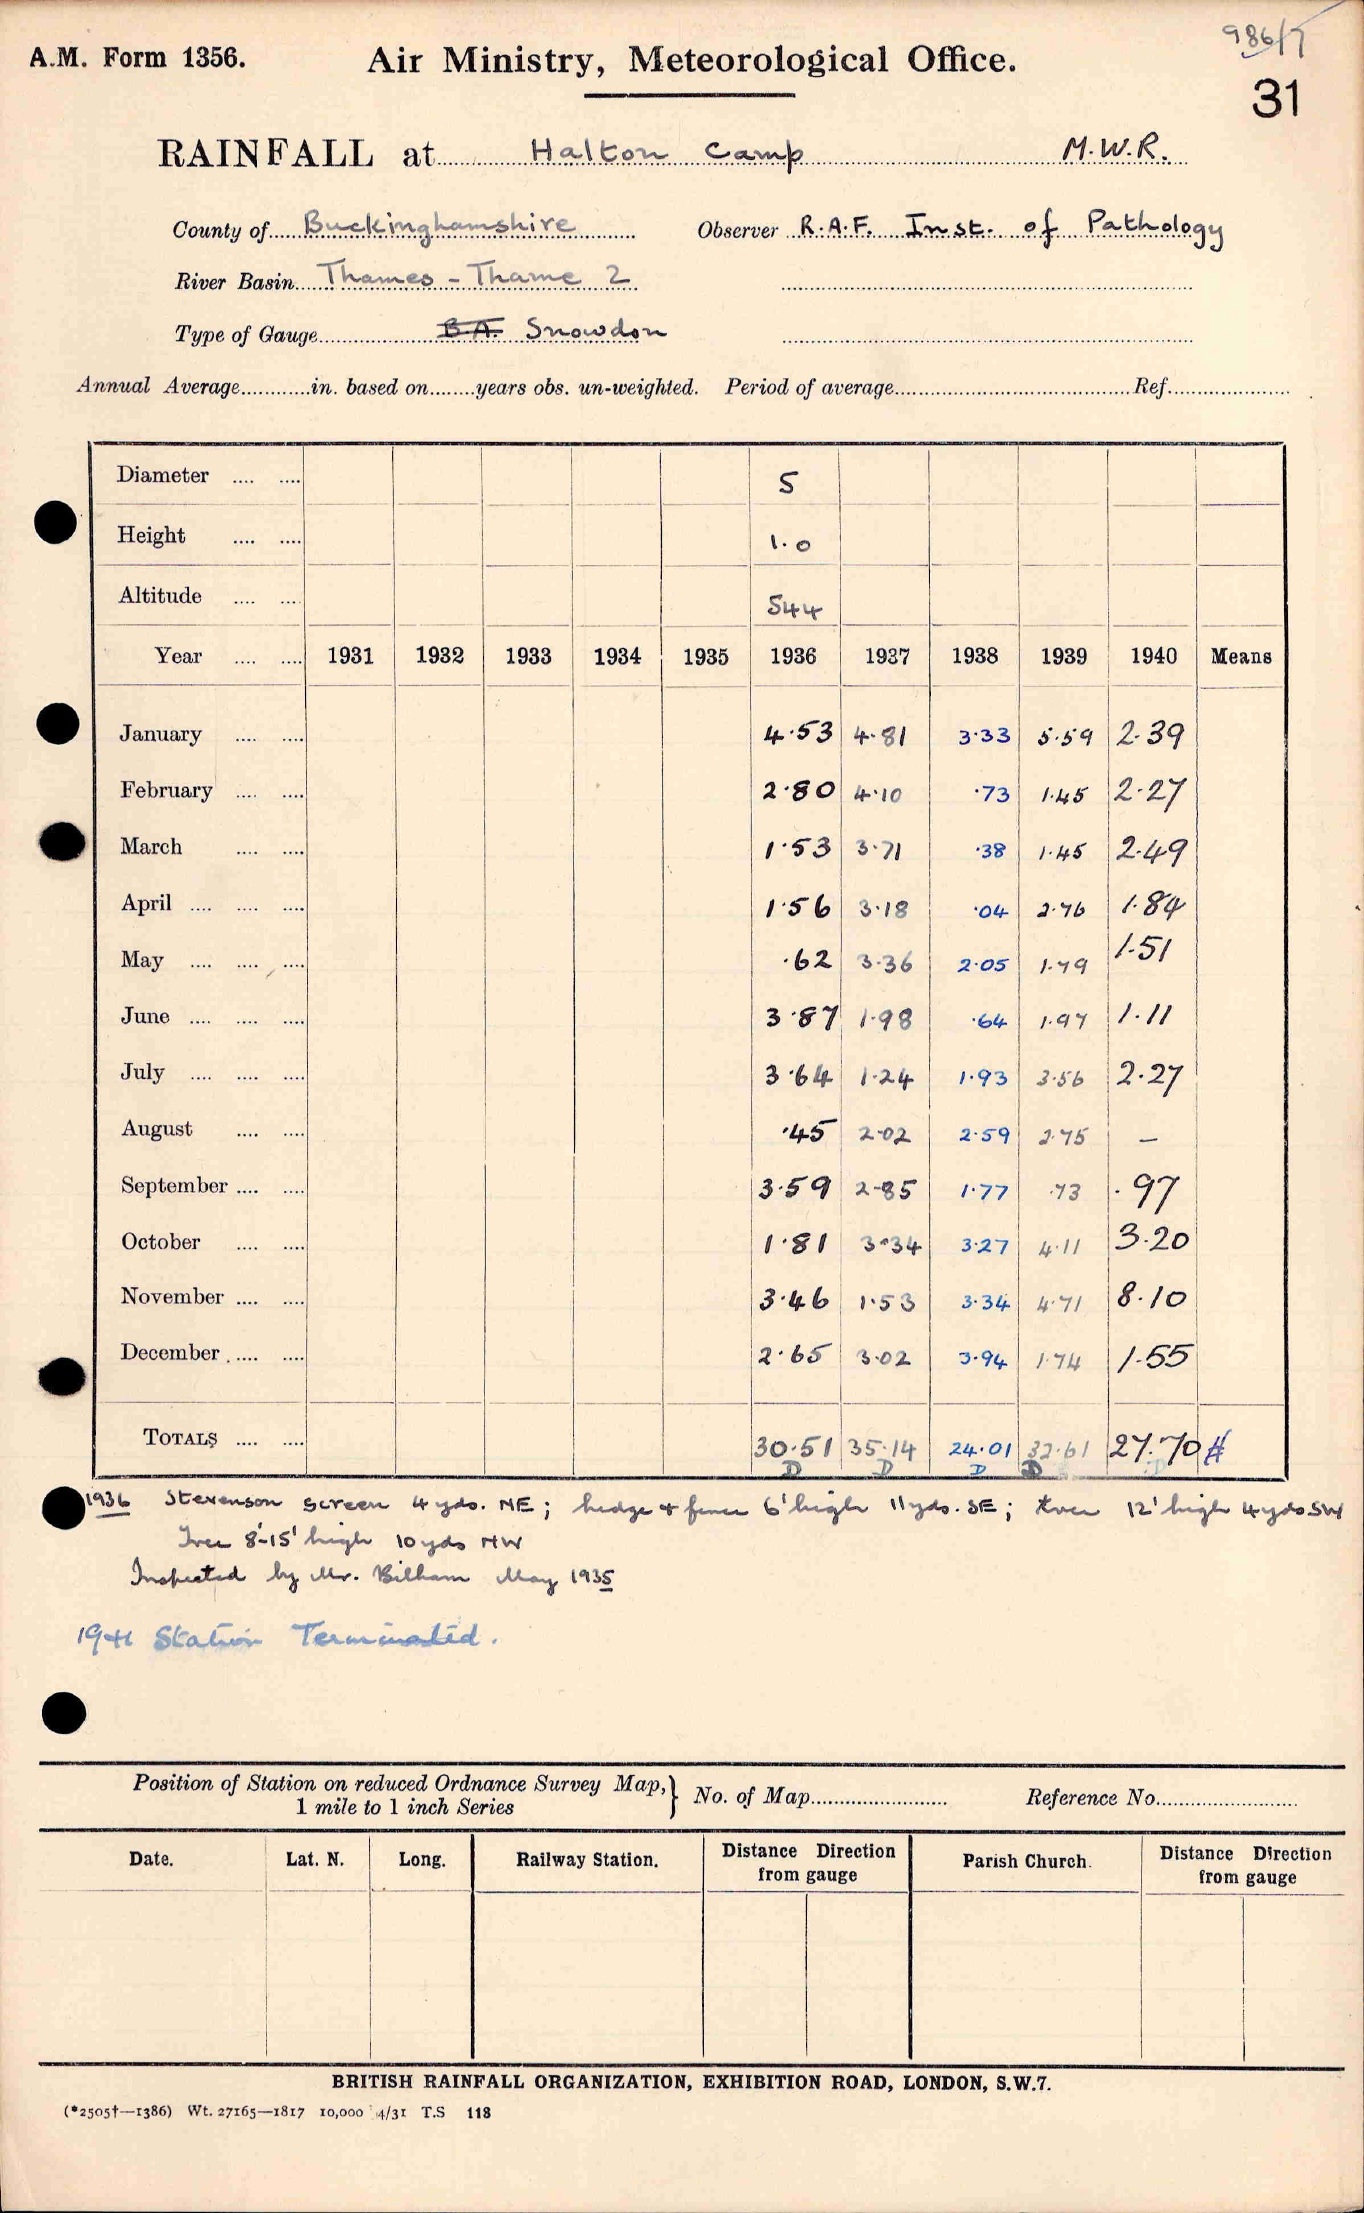 986/7
A.M. Form 1356. Air Ministry, Meteorological Office.
31
RAINFALL at Halton Camp M.W.R.
County of Buckinghamshire Observer R.A.F. Inst. of Pathology
River Basin Thames - Thame 2
Type of Gauge B.A. Snowdon
Annual Average in. based on years obs. un-weighted. Period of average Ref.
Diameter 5
Height 1.0
Altitude 544
Year 1931 1932 1933 1934 1935 1936 1937 1938 1939 1940 Means
January 4.53 4.81 3.33 5.59 2.39
February 2.80 4.10 .73 1.45 2.27
March 1.53 3.71 .38 1.45 2.49
April 1.56 3.18 .04 2.76 1.84
May .62 3.36 2.05 1.79 1.51
June 3.87 1.98 .64 1.97 1.11
July 3.64 1.24 1.93 3.56 2.27
August .45 2.02 2.59 2.75 —
September 3.59 2.85 1.77 .73 .97
October 1.81 3.34 3.27 4.11 3.20
November 3.46 1.53 3.34 4.71 8.10
December 2.65 3.02 3.94 1.74 1.55
TOTALS 30.51 35.14 24.01 32.61 27.70 #
D D D D D
1936 Stevenson screen 4 yds. NE; hedge + fence 6' high 11 yds. SE; tree 12' high 4 yds SW
Tree 8'-15' high 10 yds NW
Inspected by Mr. Bilham May 1935
1941 Station Terminated.
Position of Station on reduced Ordnance Survey Map,} No. of Map Reference No.
1 mile to 1 inch Series
Date. Lat. N. Long. Railway Station. Distance Direction from gauge Parish Church. Distance Direction from gauge
BRITISH RAINFALL ORGANIZATION, EXHIBITION ROAD, LONDON, S.W.7.
(*2505†—1386) Wt. 27165—1817 10,000 4/31 T.S 118